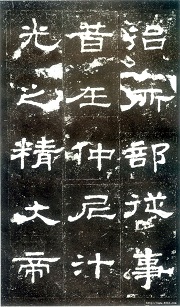 治所部從事
昔在仲尼汁
光之精大帝